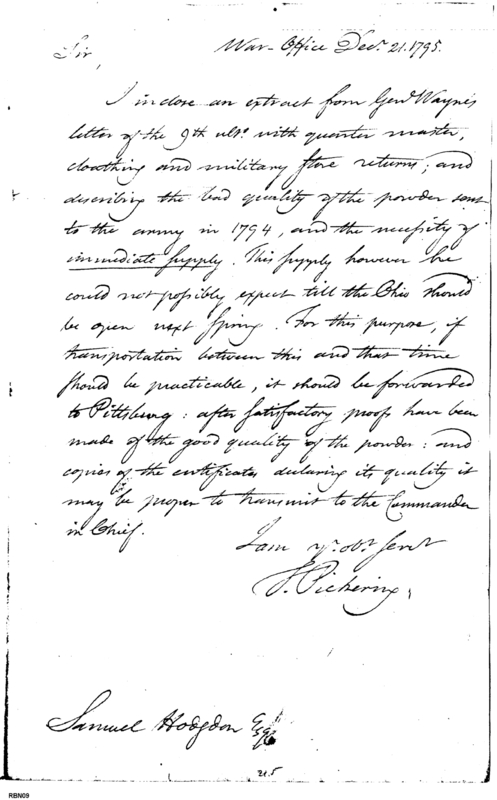 War-Office Decr. 21. 1795.
Sir,
I inclose an extract from Genl. Wayne's
letter of the 9th ulto. with quarter master,
cloathing and military store returns; and
describing the bad quality of the powder sent
to the army in 1794, and the necessity of
immediate supply. This supply however he
could not possibly expect till the Ohio should
be open next spring. For this purpose, if
transportation between this and that time
should be practicable, it should be forwarded
to Pittsburg: after satisfactory proofs have been
made of the good quality of the powder: and
copies of the certificates declaring its quality it
may be proper to transmit to the Commander
in Chief.
I am yr. obt. servt
T. Pickering,
Samuel Hodgdon Esqr.
215
RBN09